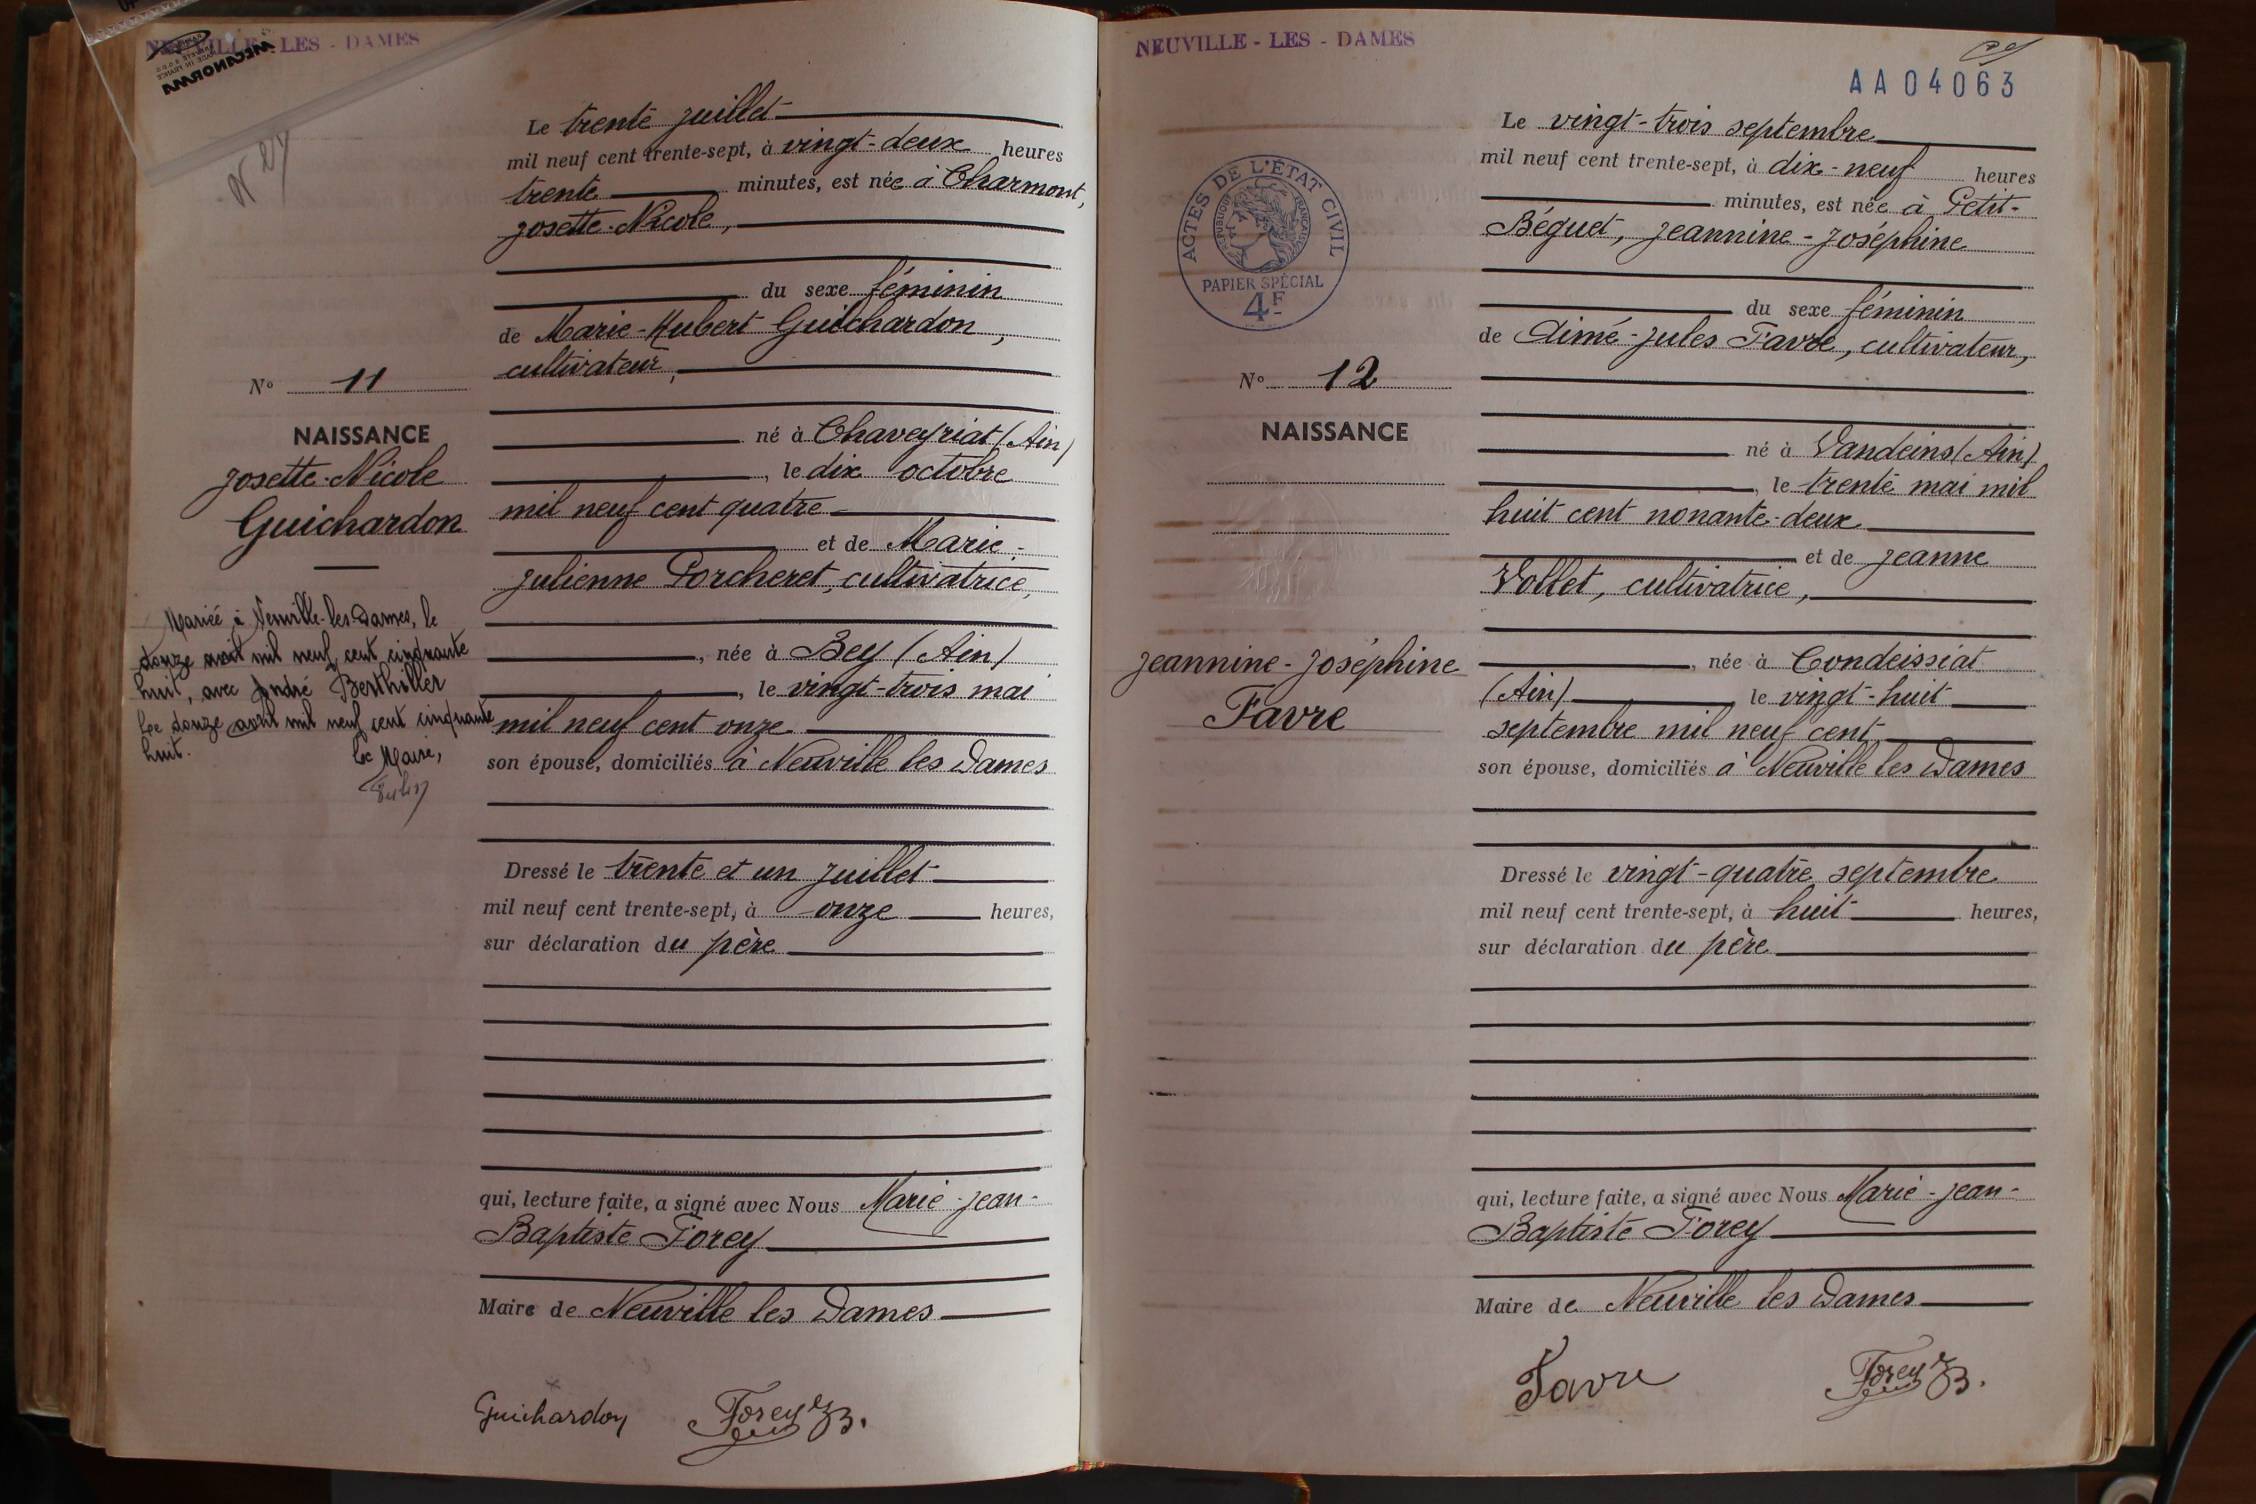 NEUVILLE - LES - DAMES
MECANORMA
N 27
Le trente juillet
mil neuf cent trente-sept, à vingt-deux heures
trente minutes, est née à Charmont,
Josette-Nicole,
du sexe féminin
de Marie-Hubert Guichardon,
cultivateur,
né à Chaveyriat (Ain)
, le dix octobre
mil neuf cent quatre
et de Marie-
Julienne Porcheret, cultivatrice,
, née à Bey (Ain)
, le vingt-trois mai
mil neuf cent onze
son épouse, domiciliés à Neuville les Dames
Dressé le trente et un juillet
mil neuf cent trente-sept, à onze heures,
sur déclaration du père
qui, lecture faite, a signé avec Nous Marie-Jean-
Baptiste Forey
Maire de Neuville les Dames
Guichardon Forey JB.
No 11
NAISSANCE
Josette-Nicole
Guichardon
Mariée à Neuville-les-Dames, le
douze avril mil neuf cent cinquante
huit, avec André Berthillier
Le douze avril mil neuf cent cinquante
huit.
Le Maire,
NEUVILLE - LES - DAMES
AA04063
ACTES DE L'ÉTAT CIVIL
RÉPUBLIQUE FRANÇAISE
PAPIER SPÉCIAL
4F
Le vingt-trois septembre
mil neuf cent trente-sept, à dix-neuf heures
minutes, est née à Petit-
Béguet, Jeannine-Joséphine
du sexe féminin
de Aimé-Jules Favre, cultivateur,
né à Vandeins (Ain)
, le trente mai mil
huit cent nonante-deux
et de Jeanne
Vollet, cultivatrice,
, née à Condeissiat
(Ain) le vingt-huit
septembre mil neuf cent
son épouse, domiciliés à Neuville les Dames
Dressé le vingt-quatre septembre
mil neuf cent trente-sept, à huit heures,
sur déclaration du père
qui, lecture faite, a signé avec Nous Marie-Jean-
Baptiste Forey
Maire de Neuville les Dames
Favre Forey JB.
No 12
NAISSANCE
Jeannine-Joséphine
Favre